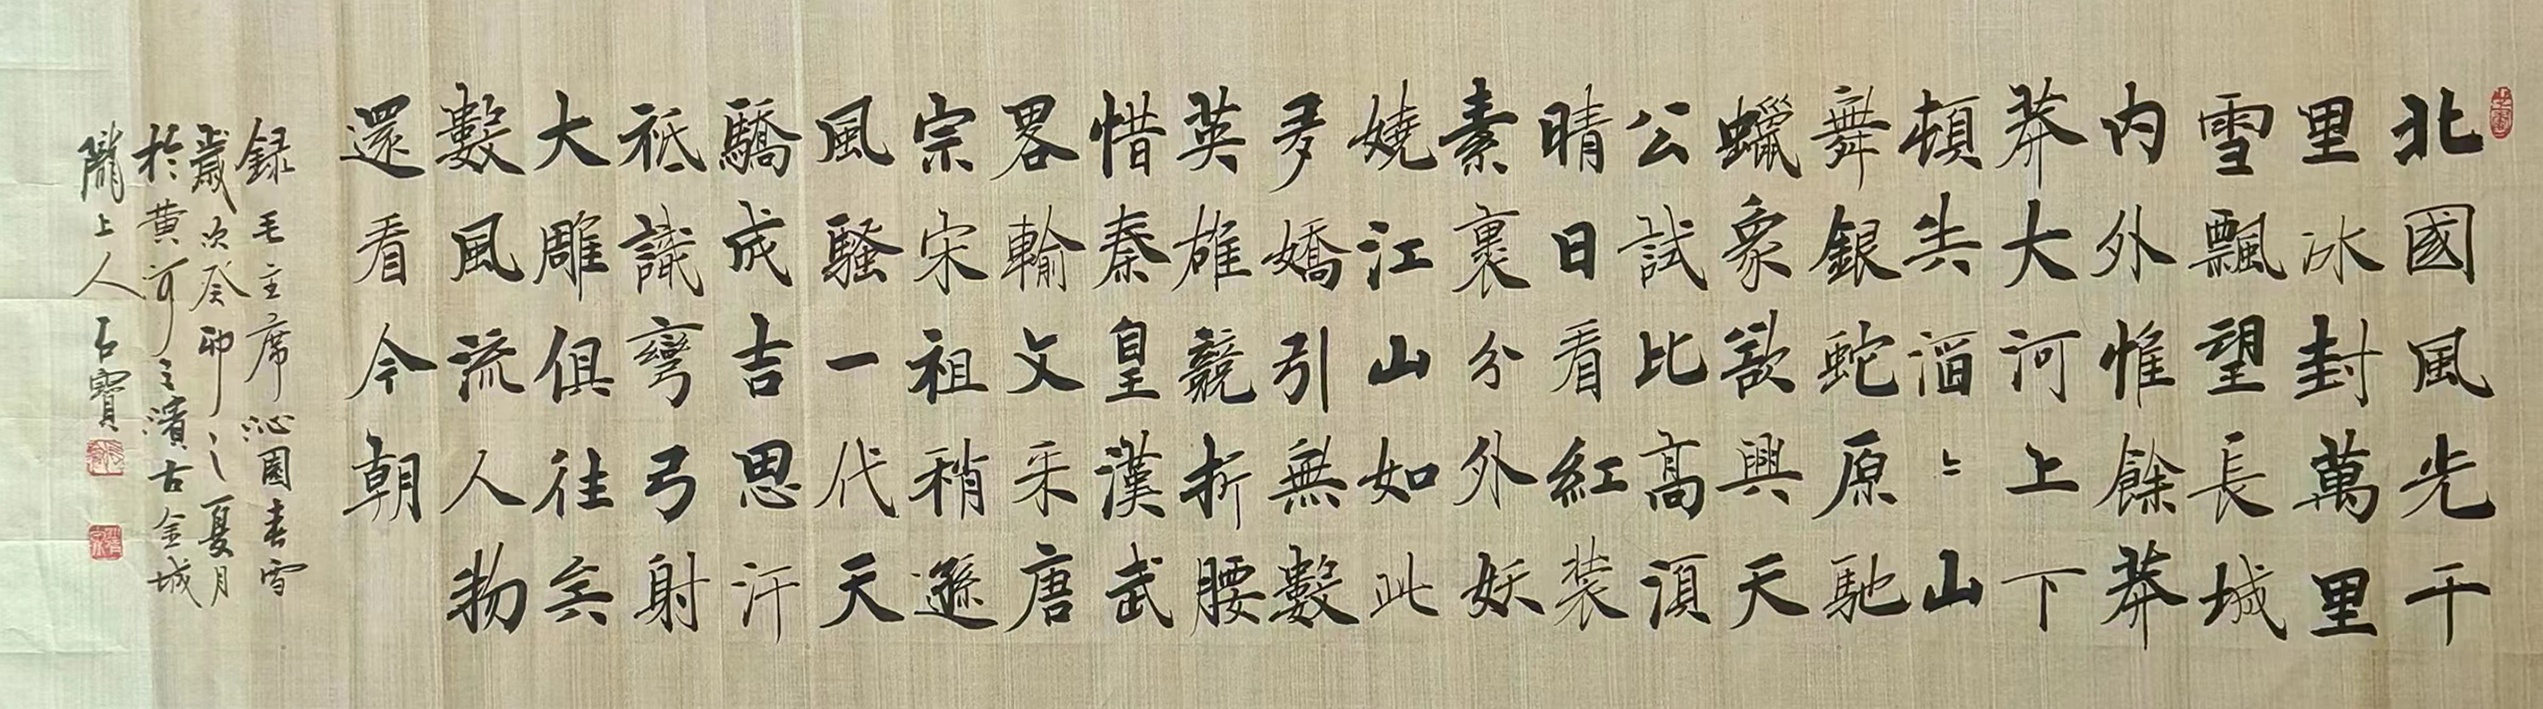 北國風光千
里冰封萬里
雪飄望長城
内外惟餘莽
莽大河上下
頓失滔〻山
舞銀蛇原馳
蠟象欲與天
公試比高須
晴日看紅装
素裹分外妖
嬈江山如此
多嬌引無數
英雄競折腰
惜秦皇漢武
畧輸文采唐
宗宋祖稍遜
風騷一代天
驕成吉思汗
祗識彎弓射
大雕俱往矣
數風流人物
還看今朝
録毛主席沁園春雪
歲次癸卯之夏月
於黄河之濱古金城
隴上人石寶